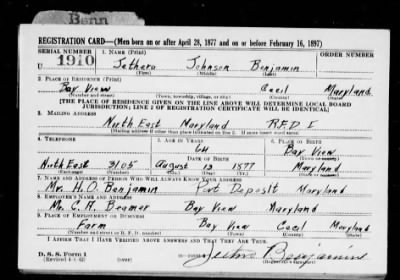 Benn
REGISTRATION CARD—(Men born on or after April 28, 1877 and on or before February 16, 1897)
SERIAL NUMBER 1. NAME (Print) ORDER NUMBER
U 1910 Jethero Johnson Benjamin
(First) (Middle) (Last)
2. PLACE OF RESIDENCE (Print)
Bay View Cecil Maryland
(Number and street) (Town, township, village, or city) (County) (State)
[THE PLACE OF RESIDENCE GIVEN ON THE LINE ABOVE WILL DETERMINE LOCAL BOARD
JURISDICTION; LINE 2 OF REGISTRATION CERTIFICATE WILL BE IDENTICAL]
3. MAILING ADDRESS
North East Maryland R.F.D. I
[Mailing address if other than place indicated on line 2. If same insert word same]
4. TELEPHONE 5. AGE IN YEARS 6. PLACE OF BIRTH
64 Bay View
DATE OF BIRTH (Town or county)
North East 3105 August 13 1877 Maryland
(Exchange) (Number) (Mo.) (Day) (Yr.) (State or country)
7. NAME AND ADDRESS OF PERSON WHO WILL ALWAYS KNOW YOUR ADDRESS
Mr. H.O. Benjamin Port Deposit Maryland
8. EMPLOYER'S NAME AND ADDRESS
Mr. C. R. Beamer Bay View Maryland
9. PLACE OF EMPLOYMENT OR BUSINESS
Farm Bay View Cecil Maryland
(Number and street or R. F. D. number) (Town) (County) (State)
I AFFIRM THAT I HAVE VERIFIED ABOVE ANSWERS AND THAT THEY ARE TRUE.
D. S. S. Form 1
(Revised 4-1-42) Benjamin